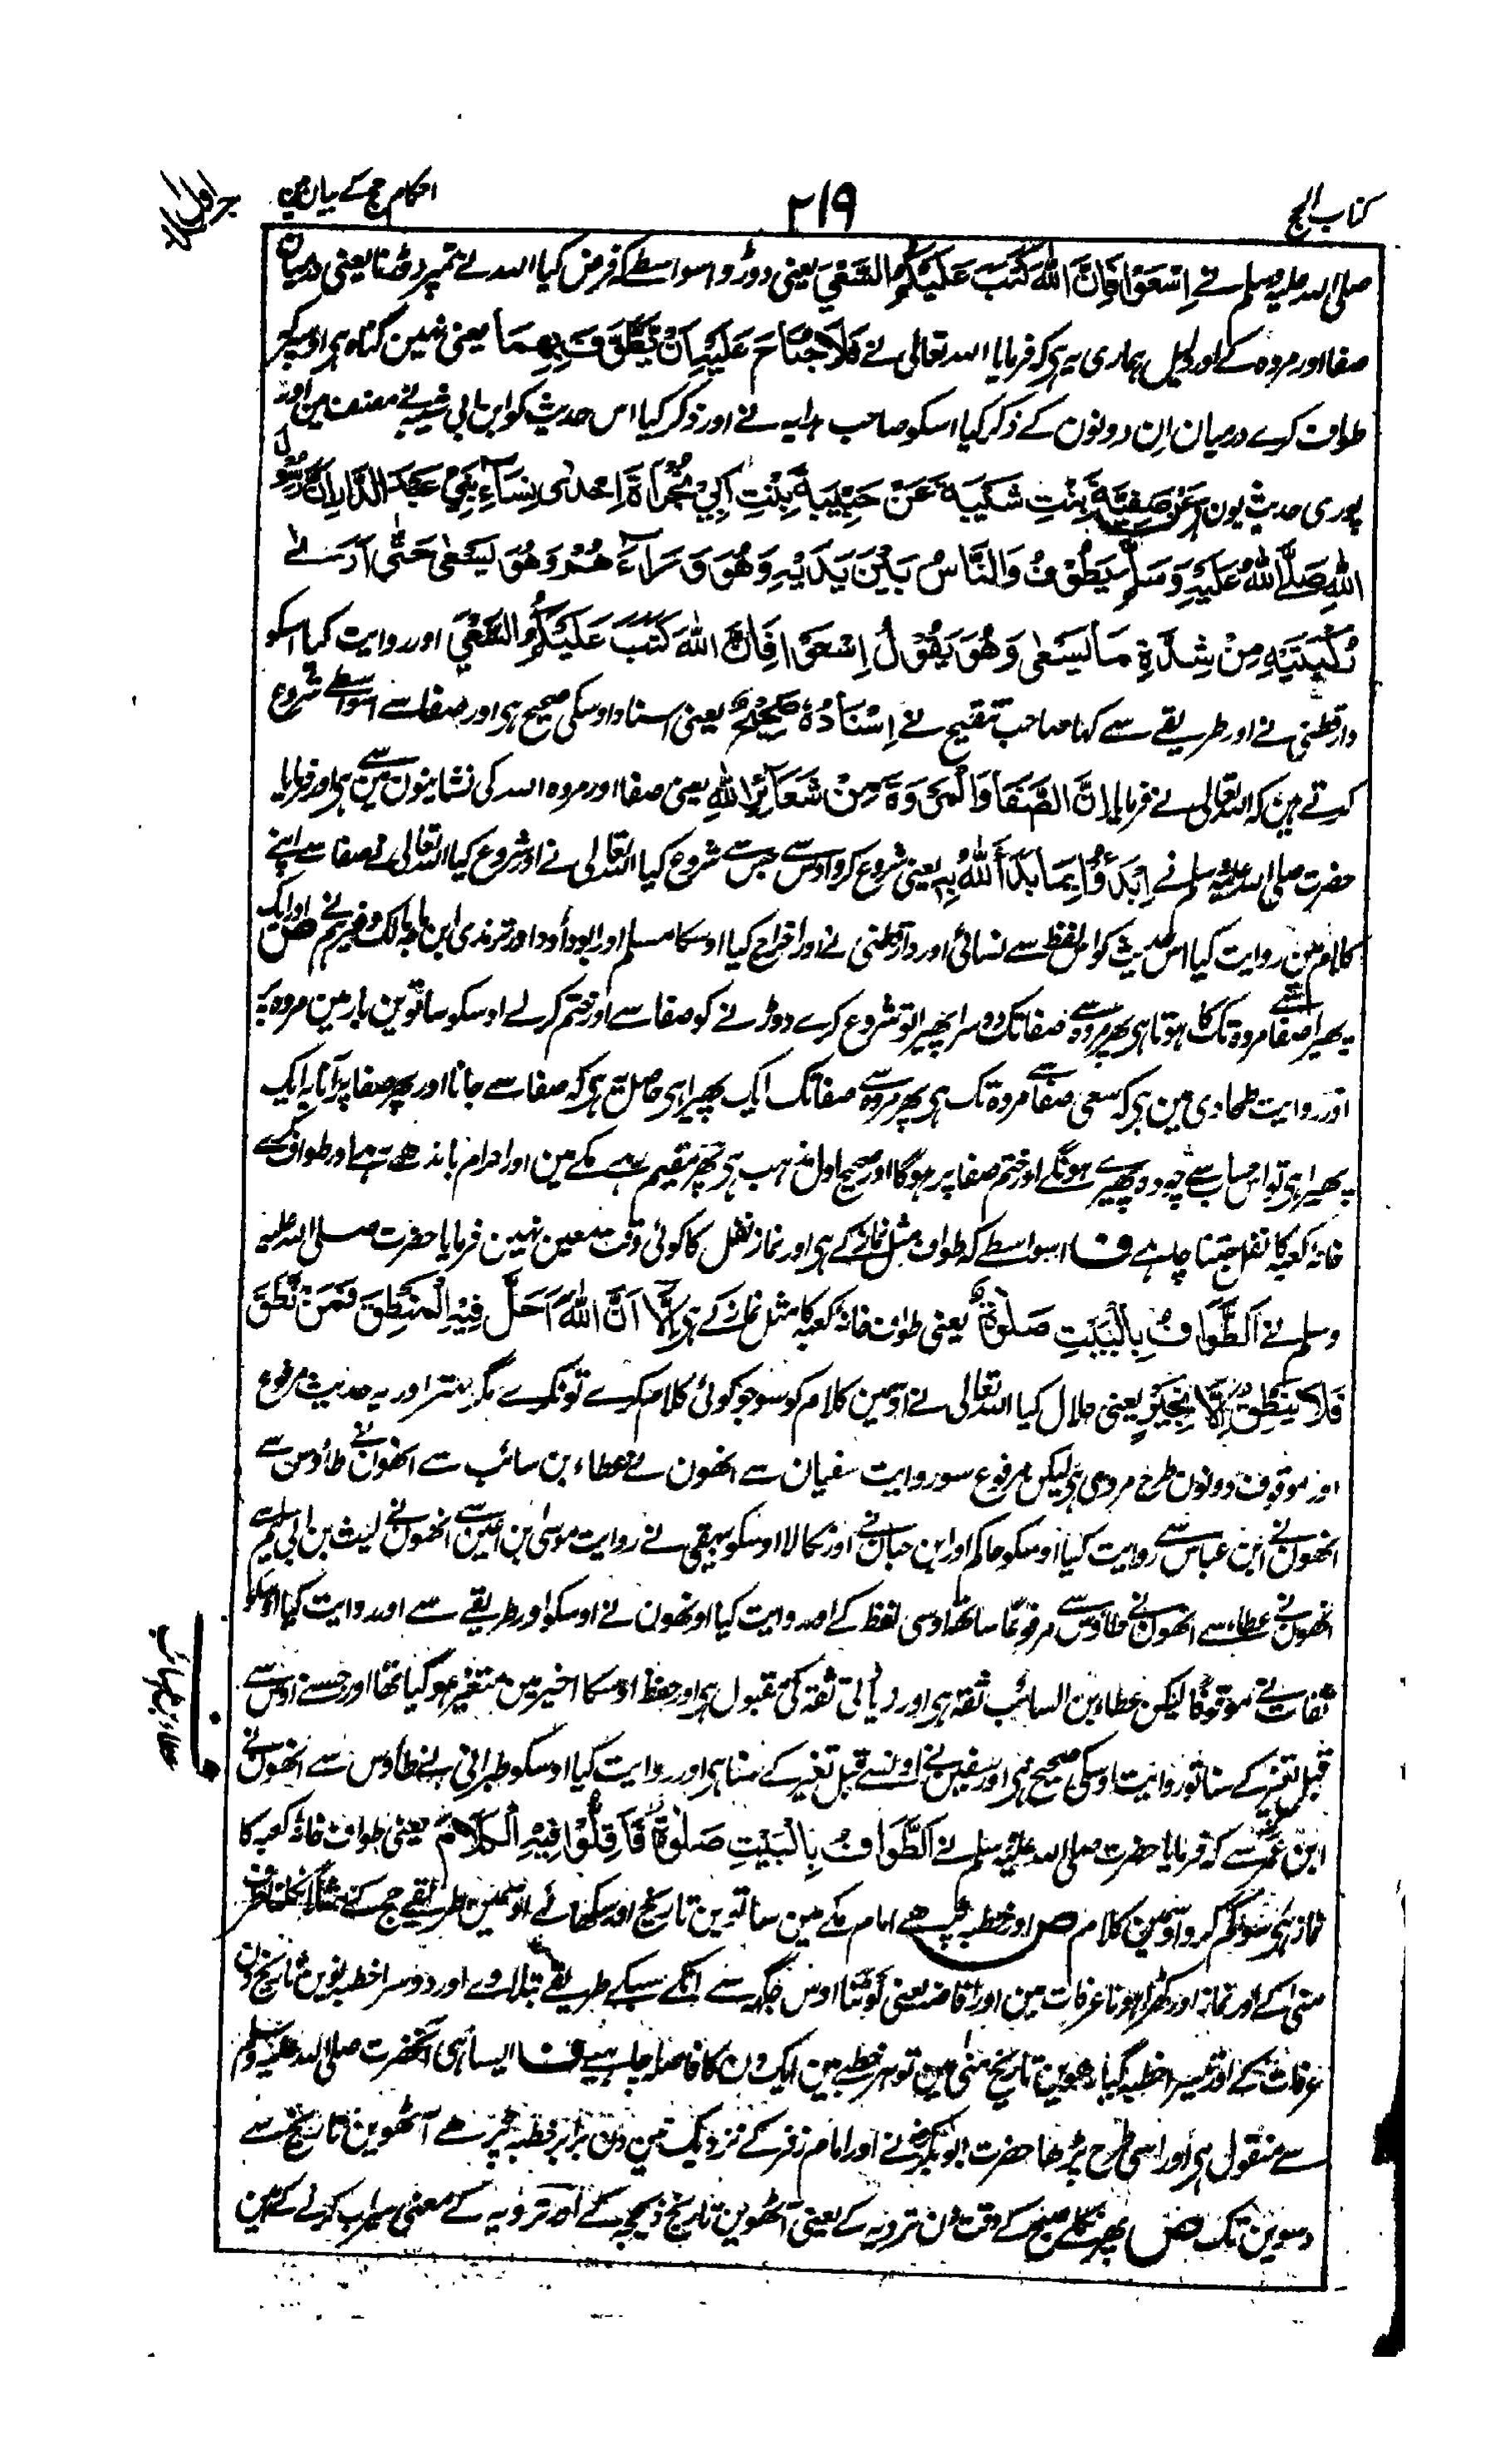 کتاب الحج
۲۱۹
احکام حج کے بیان مین
جلد اول
صلی اللہ علیہ وسلم نے اِسْعَوْا فَاِنَّ اللّٰهَ كَتَبَ عَلَيْكُمُ السَّعْيَ یعنی دوڑو اسواسطے کہ فرض کیا اللہ نے تمپر دوڑنا یعنی درمیان
صفا اور مروہ کے اور دلیل ہماری یہ ہی کہ فرمایا اللہ تعالی نے فَلَا جُنَاحَ عَلَيْهِ اَنْ يَّطَّوَّفَ بِهِمَا یعنی نہین گناہ ہی اوسپر کہ
طواف کرے درمیان اِن دونون کے ذکر کیا اسکو صاحب ہدایہ نے اور ذکر کیا اس حدیث کو ابن ابی شیبہ نے مصنف مین اور
پوری حدیث یون ہی عَنْ صَفِيَّةَ بِنْتِ شَيْبَةَ عَنْ حَبِيْبَةَ بِنْتِ اَبِيْ تُجْرَاةَ اِحْدٰى نِسَآءِ بَنِيْ عَبْدِ الدَّارِ اِنَّ رَسُوْلَ
اللّٰهِ صَلَّى اللّٰهُ عَلَيْهِ وَسَلَّمَ يَطُوْفُ وَالنَّاسُ بَيْنَ يَدَيْهِ وَهُوَ وَرَآءَهُمْ وَهُوَ يَسْعٰى حَتّٰى اَرٰى
رُكْبَتَيْهِ مِنْ شِدَّةِ مَا يَسْعٰى وَهُوَ يَقُوْلُ اِسْعَوْا فَاِنَّ اللّٰهَ كَتَبَ عَلَيْكُمُ السَّعْيَ اور روایت کیا اسکو
دارقطنی نے اور طریقے سے کہا صاحب تنقیح نے اِسْنَادُهٗ صَحِيْحٌ یعنی اسناد اوسکی صحیح ہی اور صفا سے اسواسطے شروع
کرتے ہین کہ اللہ تعالی نے فرمایا اِنَّ الصَّفَا وَالْمَرْوَةَ مِنْ شَعَآئِرِ اللّٰهِ یعنی صفا اور مروہ اللہ کی نشانیون مین سے ہی اور فرمایا
حضرت صلی اللہ علیہ وسلم نے اِبْدَؤُا بِمَا بَدَأَ اللّٰهُ بِهٖ یعنی شروع کرو اوس سے جس سے شروع کیا اللہ تعالی نے اور شروع کیا اللہ تعالی نے صفا سے اپنے
کلام مین روایت کیا اس حدیث کو اس لفظ سے نسائی اور دارقطنی نے اور اخراج کیا اوسکا مسلم اور ابوداؤد اور ترمذی ابن ماجہ مالک وغیرہم نے ص اور ایک
پھیرا صفا سے مروہ تک کا ہوتا ہی پھر مروہ سے صفا تک دوسرا پھیرا تو شروع کرے دوڑنے کو صفا سے اور ختم کرلے اوسکو ساتوین بار مین مروہ پہ
اور روایت طحاوی مین ہی کہ سعی صفا سے مروہ تک ہی پھر مروہ سے صفا تک ایک پھیرا ہی حاصل یہ ہی کہ صفا سے جانا اور پھر صفا پر آنا یہ ایک
پھیرا ہی تو اس حساب سے چودہ پھیرے ہونگے اور ختم صفا پر ہوگا اور صحیح اول مذہب ہی پھر مقیم رہے مکے مین اور احرام باندھے رہے اور طواف کرے
خانہ کعبہ کا نفل جتنا چاہے ف اسواسطے کہ طواف مثل نماز کے ہی اور نماز نفل کا کوئی وقت معین نہین فرمایا حضرت صلی اللہ علیہ
وسلم نے اَلطَّوَافُ بِالْبَيْتِ صَلٰوةٌ یعنی طواف خانہ کعبہ کا مثل نماز کے ہی اِلَّا اَنَّ اللّٰهَ اَحَلَّ فِيْهِ الْمَنْطِقَ فَمَنْ نَّطَقَ
فَلَا يَنْطِقْ اِلَّا بِخَيْرٍ یعنی حلال کیا اللہ تعالی نے اوسمین کلام کو سو جو کوئی کلام کرے تو نکرے مگر بہتر اور یہ حدیث مرفوع
اور موقوف دونون طرح مروی ہی لیکن مرفوع سو روایت سفیان سے انھون نے عطاء بن سائب سے انھون نے طاؤس سے
انھون نے ابن عباس سے روایت کیا اوسکو حاکم اور ابن حبان نے اور نکالا اوسکو بیہقی نے روایت موسیٰ بن اعین سے انھون نے لیث بن ابی سلیم سے
انھون نے عطاء سے انھون نے طاؤس سے مرفوعًا ساتھ اوسی لفظ کے اور روایت کیا اونھون نے اوسکو اور طریقے سے اور روایت کیا اوسکو
ثقات نے موقوفًا لیکن عطاء بن السائب ثقہ ہی اور زیادتی ثقہ کی مقبول ہی اور حفظ اوسکا اخیر مین متغیر ہو گیا تھا اور جسنے اوس سے
قبل تغیر کے سنا تو روایت اوسکی صحیح ہی اور سفین نے اونسے قبل تغیر کے سنا ہی اور روایت کیا اوسکو طبرانی نے طاؤس سے انھون نے
ابن عمر سے کہ فرمایا حضرت صلی اللہ علیہ وسلم نے اَلطَّوَافُ بِالْبَيْتِ صَلٰوةٌ فَاَقِلُّوْا فِيْهِ الْكَلَامَ یعنی طواف خانہ کعبہ کا
نماز ہی سو کم کرو اوسمین کلام ص اور خطبہ پڑھے امام مکے مین ساتوین تاریخ اور سکھائے اوسمین طریقے حج کے مثلاً نکلنا طرف
منیٰ کے اور نماز اور کھڑا ہونا عرفات مین اور افاضہ یعنی لوٹنا اوس جگہ سے انکے سبکے طریقے بتلاوے اور دوسرا خطبہ نوین تاریخ دن
عرفات کے اور تیسرا خطبہ گیارھوین تاریخ منیٰ مین تو ہر خطبے مین ایک دن کا فاصلہ چاہیے ف ایسا ہی آنحضرت صلی اللہ علیہ وسلم
سے منقول ہی اور اسی طرح پڑھا حضرت ابوبکر نے اور امام زفر کے نزدیک تین دن برابر خطبہ پڑھے آٹھوین تاریخ سے
دسوین تک ص پھر نکلے صبح کے وقت دن ترویہ کے یعنی آٹھوین تاریخ ذیحجہ کے اور ترویہ کے معنی سیراب کرنے کے ہین